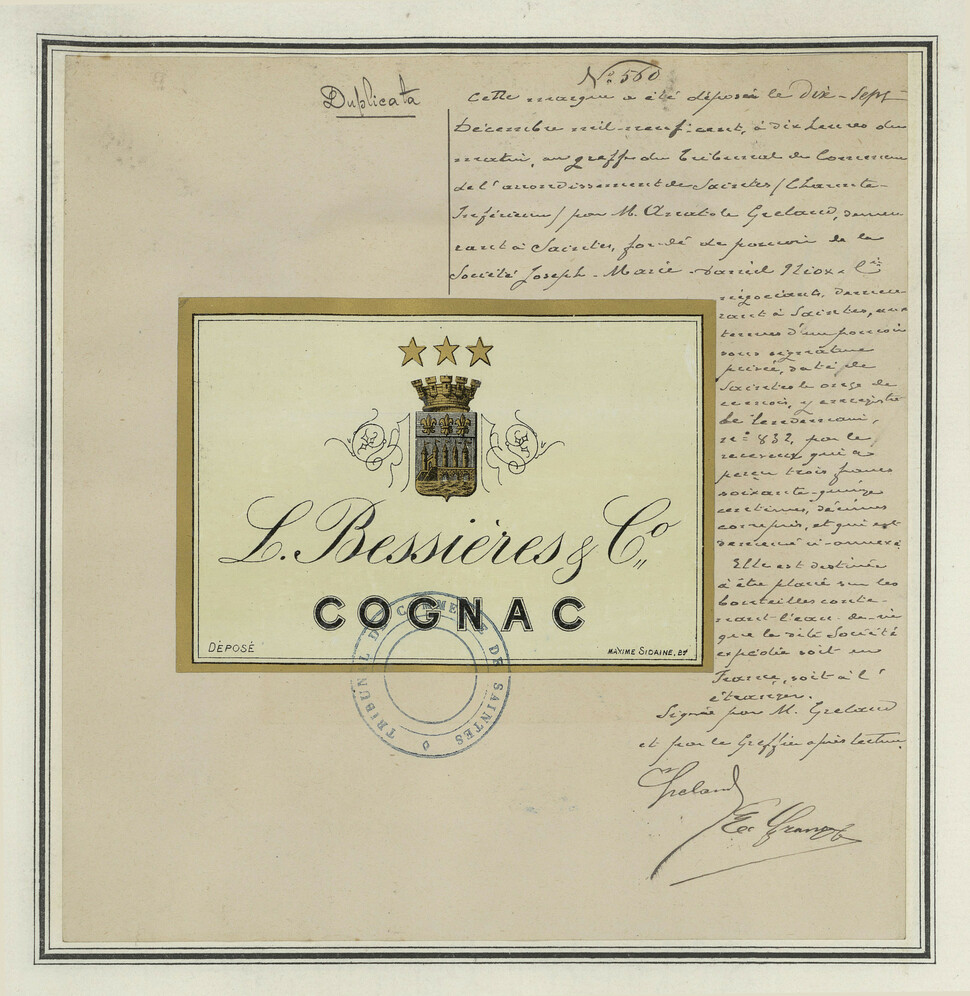 Duplicata
N° 560
Cette marque a été déposée le Dix-Sept
Décembre mil-neuf-cent, à dix heures du
matin, au greffe du Tribunal de Commerce
de l'arrondissement de Saintes (Charente-
Inférieure) par M. Anatole Greland, demeu-
rant à Saintes, fondé de pouvoir de la
Société Joseph-Marie-Daniel Niox & Cie
négociants, demeu-
rant à Saintes, aux
termes d'un pouvoir
sous signature
privée, daté de
Saintes le onze de
ce mois, y enregistré
le lendemain,
n° 832, par le
receveur qui a
perçu trois francs
soixante-quinze
centimes, décimes
compris, et qui est
demeuré ci-annexé.
Elle est destinée
à être placée sur les
bouteilles conte-
nant l'eau-de-vie
que la dite Société
expédie soit en
France, soit à l'
étranger.
Signée par M. Greland
et par le Greffier après lecture.
Greland
L. Bessières & Co
COGNAC
DÉPOSÉ
MAXIME SICAINE, BX
TRIBUNAL DE COMMERCE DE SAINTES